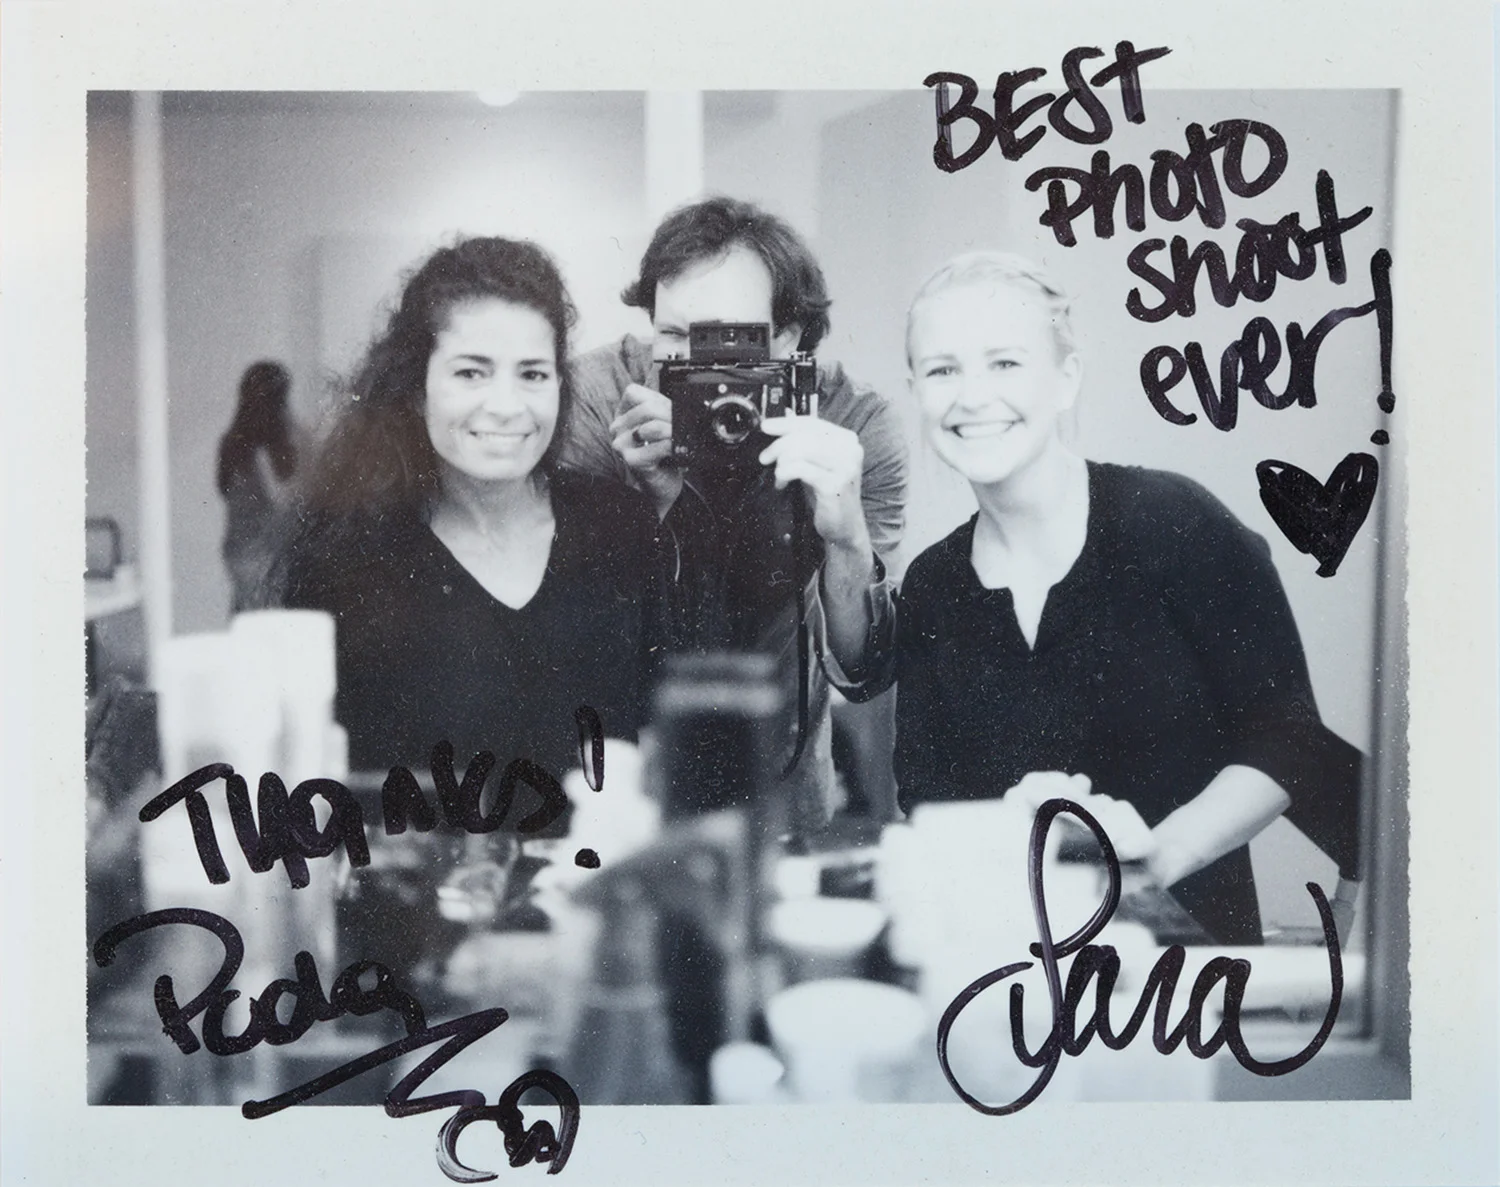 BEST
Photo
Shoot
ever!
THANKS!
Sara